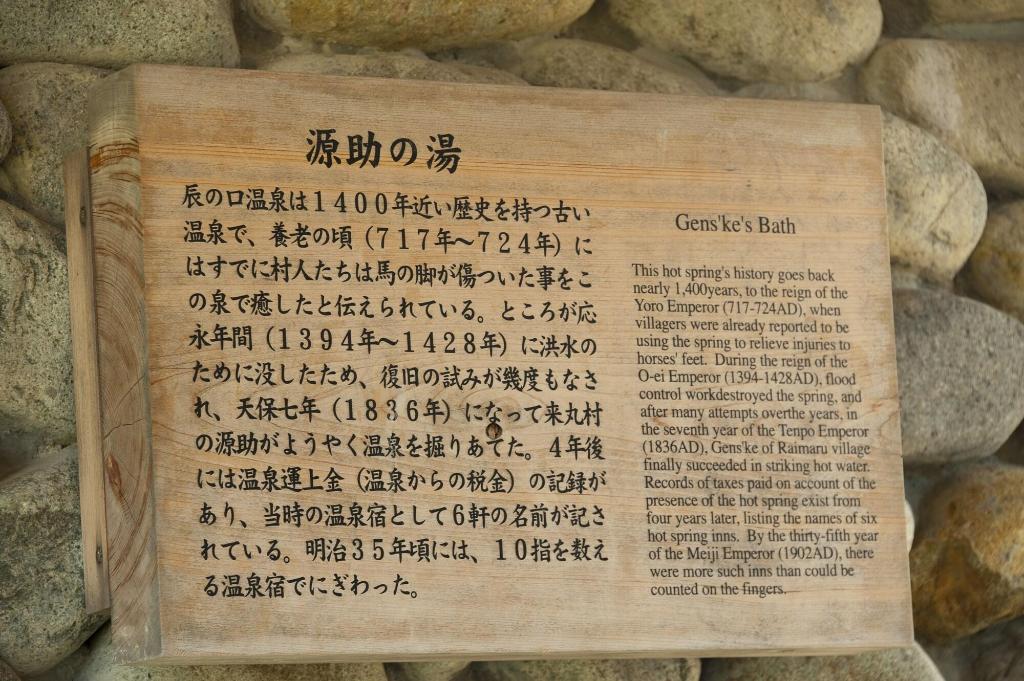 源助の湯
辰の口温泉は１４００年近い歴史を持つ古い
温泉で、養老の頃（７１７年～７２４年）に
はすでに村人たちは馬の脚が傷ついた事をこ
の泉で癒したと伝えられている。ところが応
永年間（１３９４年～１４２８年）に洪水の
ために没したため、復旧の試みが幾度もなさ
れ、天保七年（１８３６年）になって来丸村
の源助がようやく温泉を掘りあてた。４年後
には温泉運上金（温泉からの税金）の記録が
あり、当時の温泉宿として６軒の名前が記さ
れている。明治３５年頃には、１０指を数え
る温泉宿でにぎわった。
Gens'ke's Bath
This hot spring's history goes back
nearly 1,400years, to the reign of the
Yoro Emperor (717-724AD), when
villagers were already reported to be
using the spring to relieve injuries to
horses' feet. During the reign of the
O-ei Emperor (1394-1428AD), flood
control workdestroyed the spring, and
after many attempts overthe years, in
the seventh year of the Tenpo Emperor
(1836AD), Gens'ke of Raimaru village
finally succeeded in striking hot water.
Records of taxes paid on account of the
presence of the hot spring exist from
four years later, listing the names of six
hot spring inns. By the thirty-fifth year
of the Meiji Emperor (1902AD), there
were more such inns than could be
counted on the fingers.